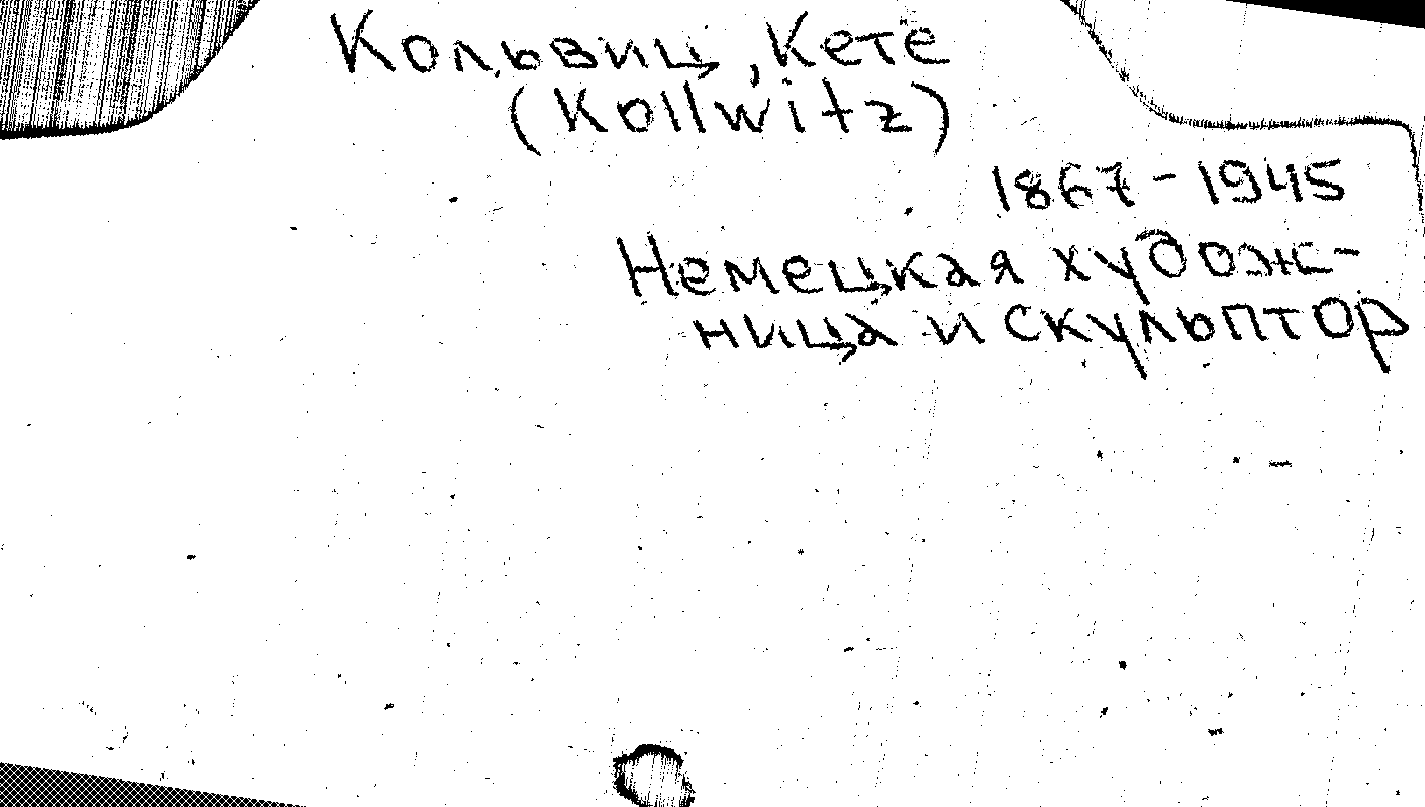 Кольвиц, Кете
(Kollwitz)
1867-1945
Немецкая худож-
ница и скульптор